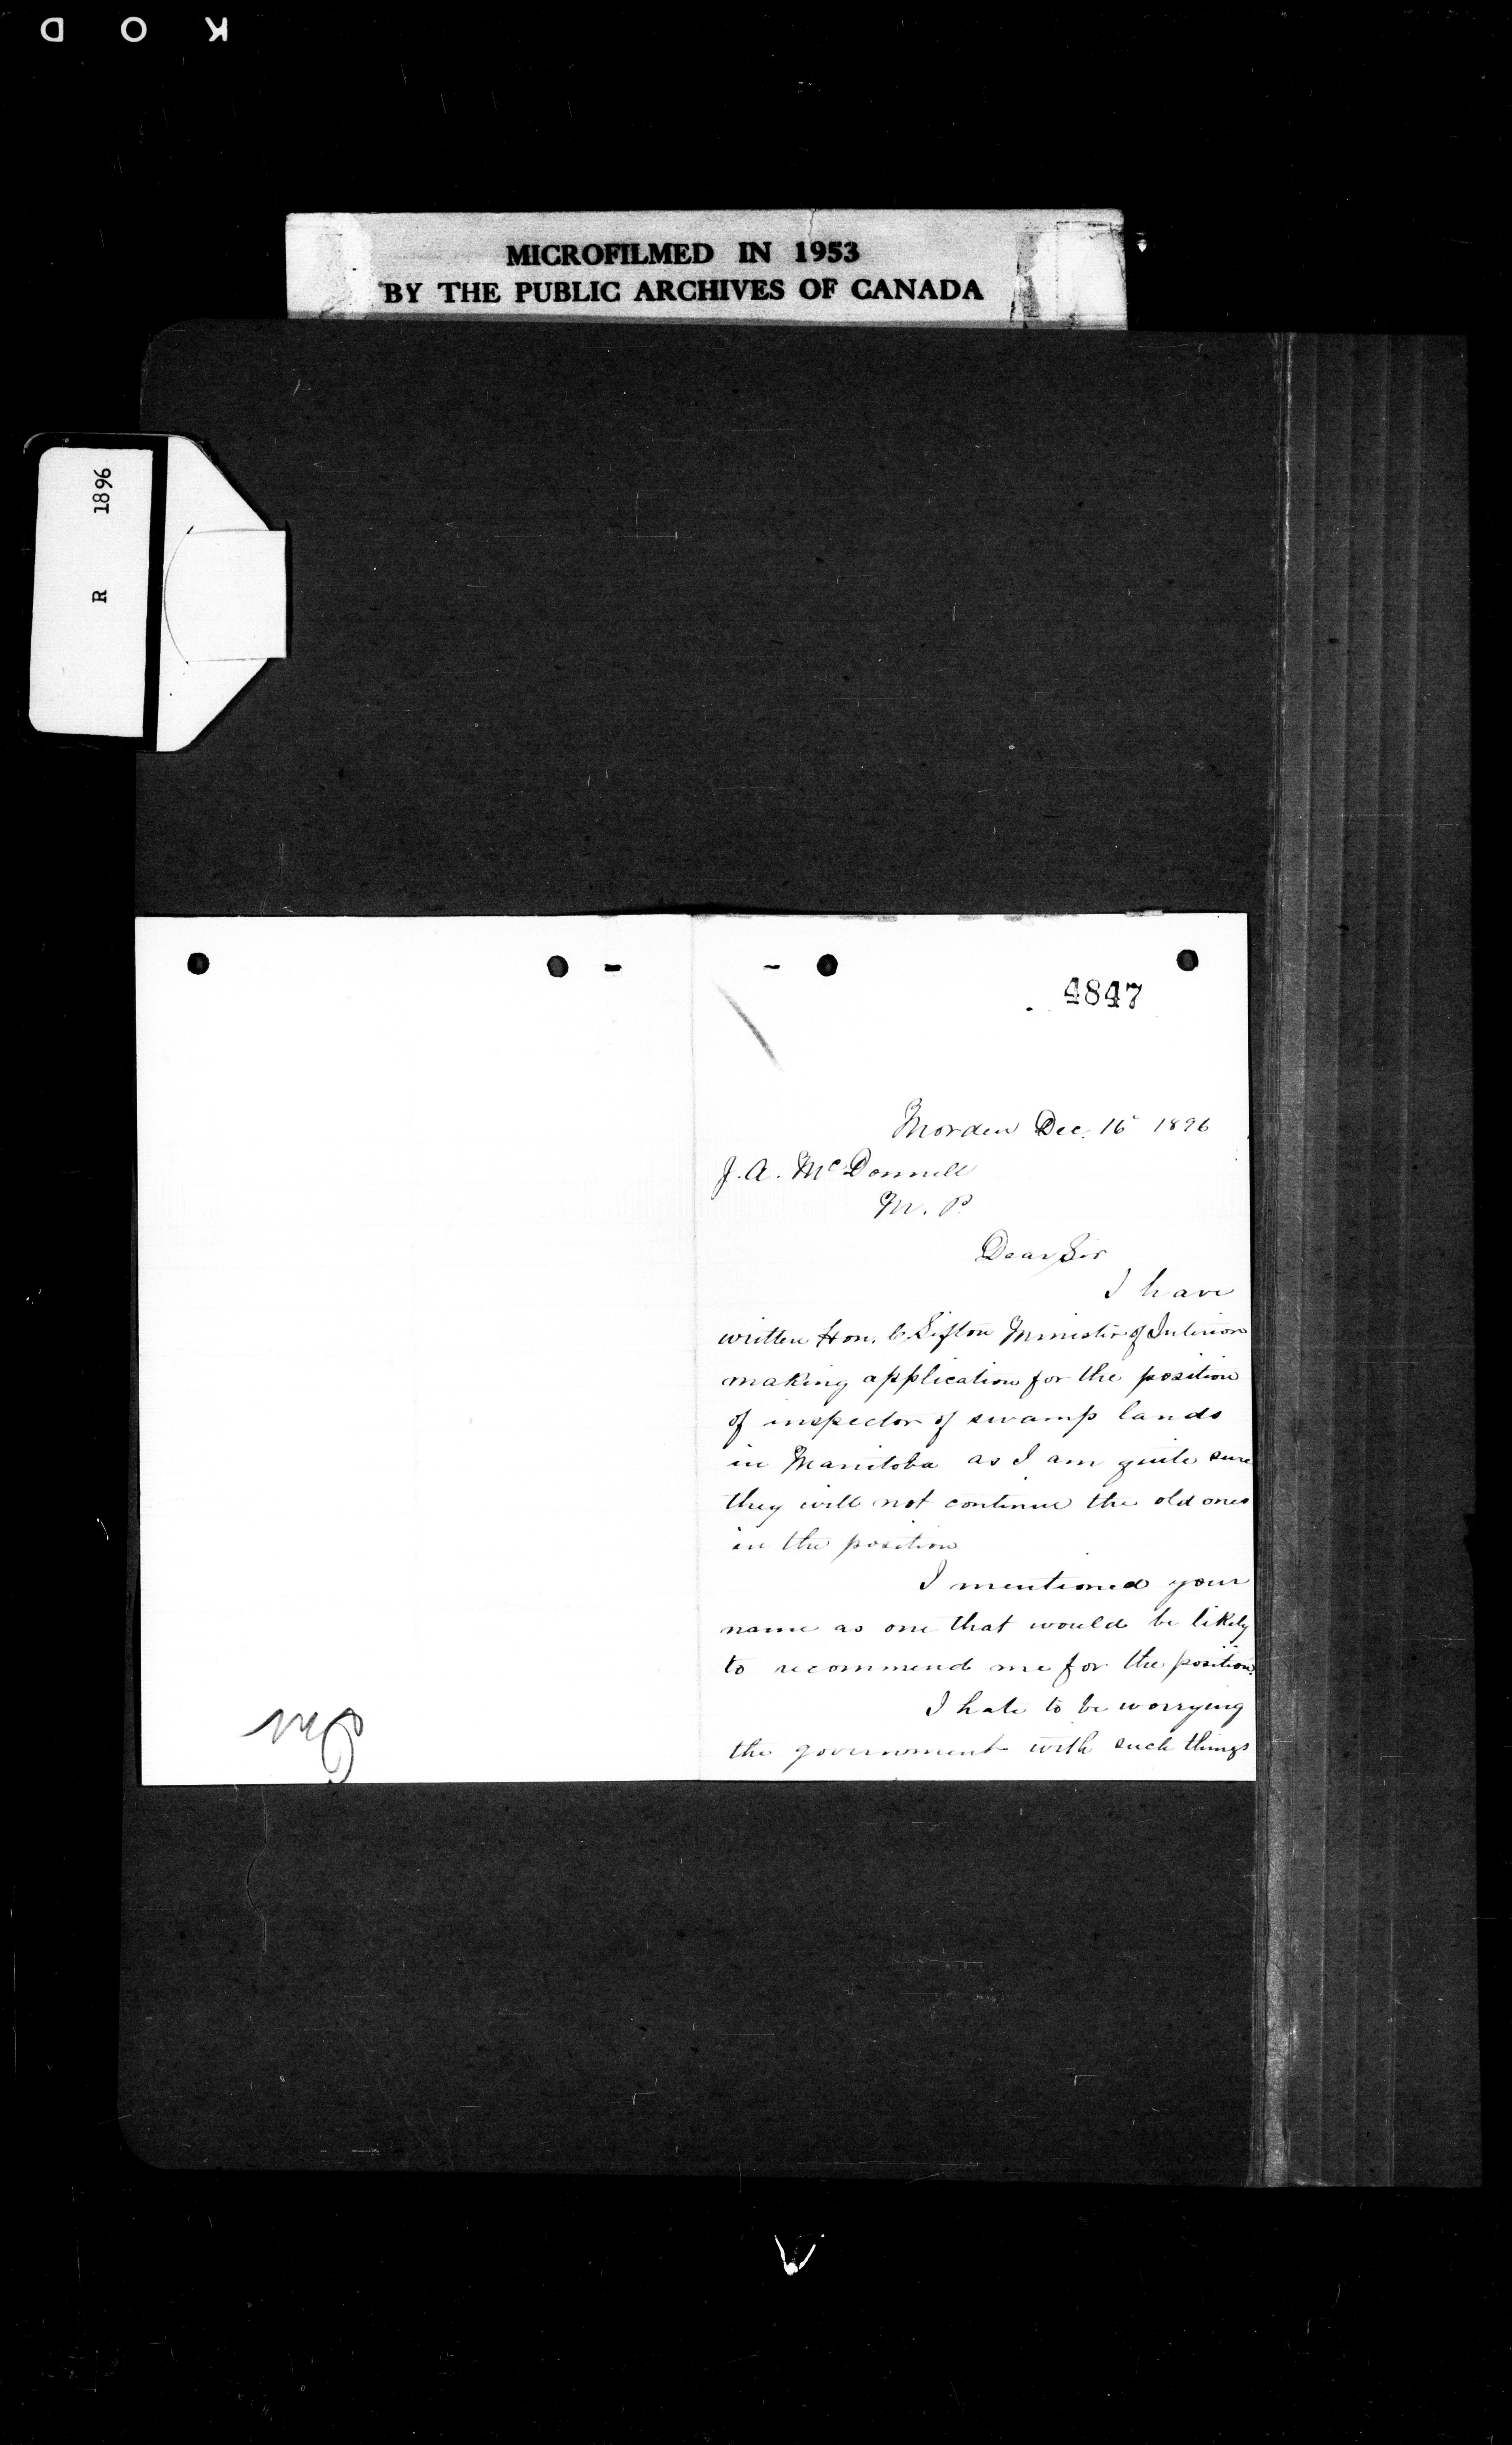 K O D
MICROFILMED IN 1953
BY THE PUBLIC ARCHIVES OF CANADA
R 1896
4847
Morden Dec. 16 1896
J. A. McDonnell
M. P.
Dear Sir
I have
written Hon. C Sifton Minister of Interior
making application for the position
of inspector of swamp lands
in Manitoba as I am quite sure
they will not continue the old ones
in the position
I mentioned your
name as one that would be likely
to recommend me for the position.
I hate to be worrying
the government with such things